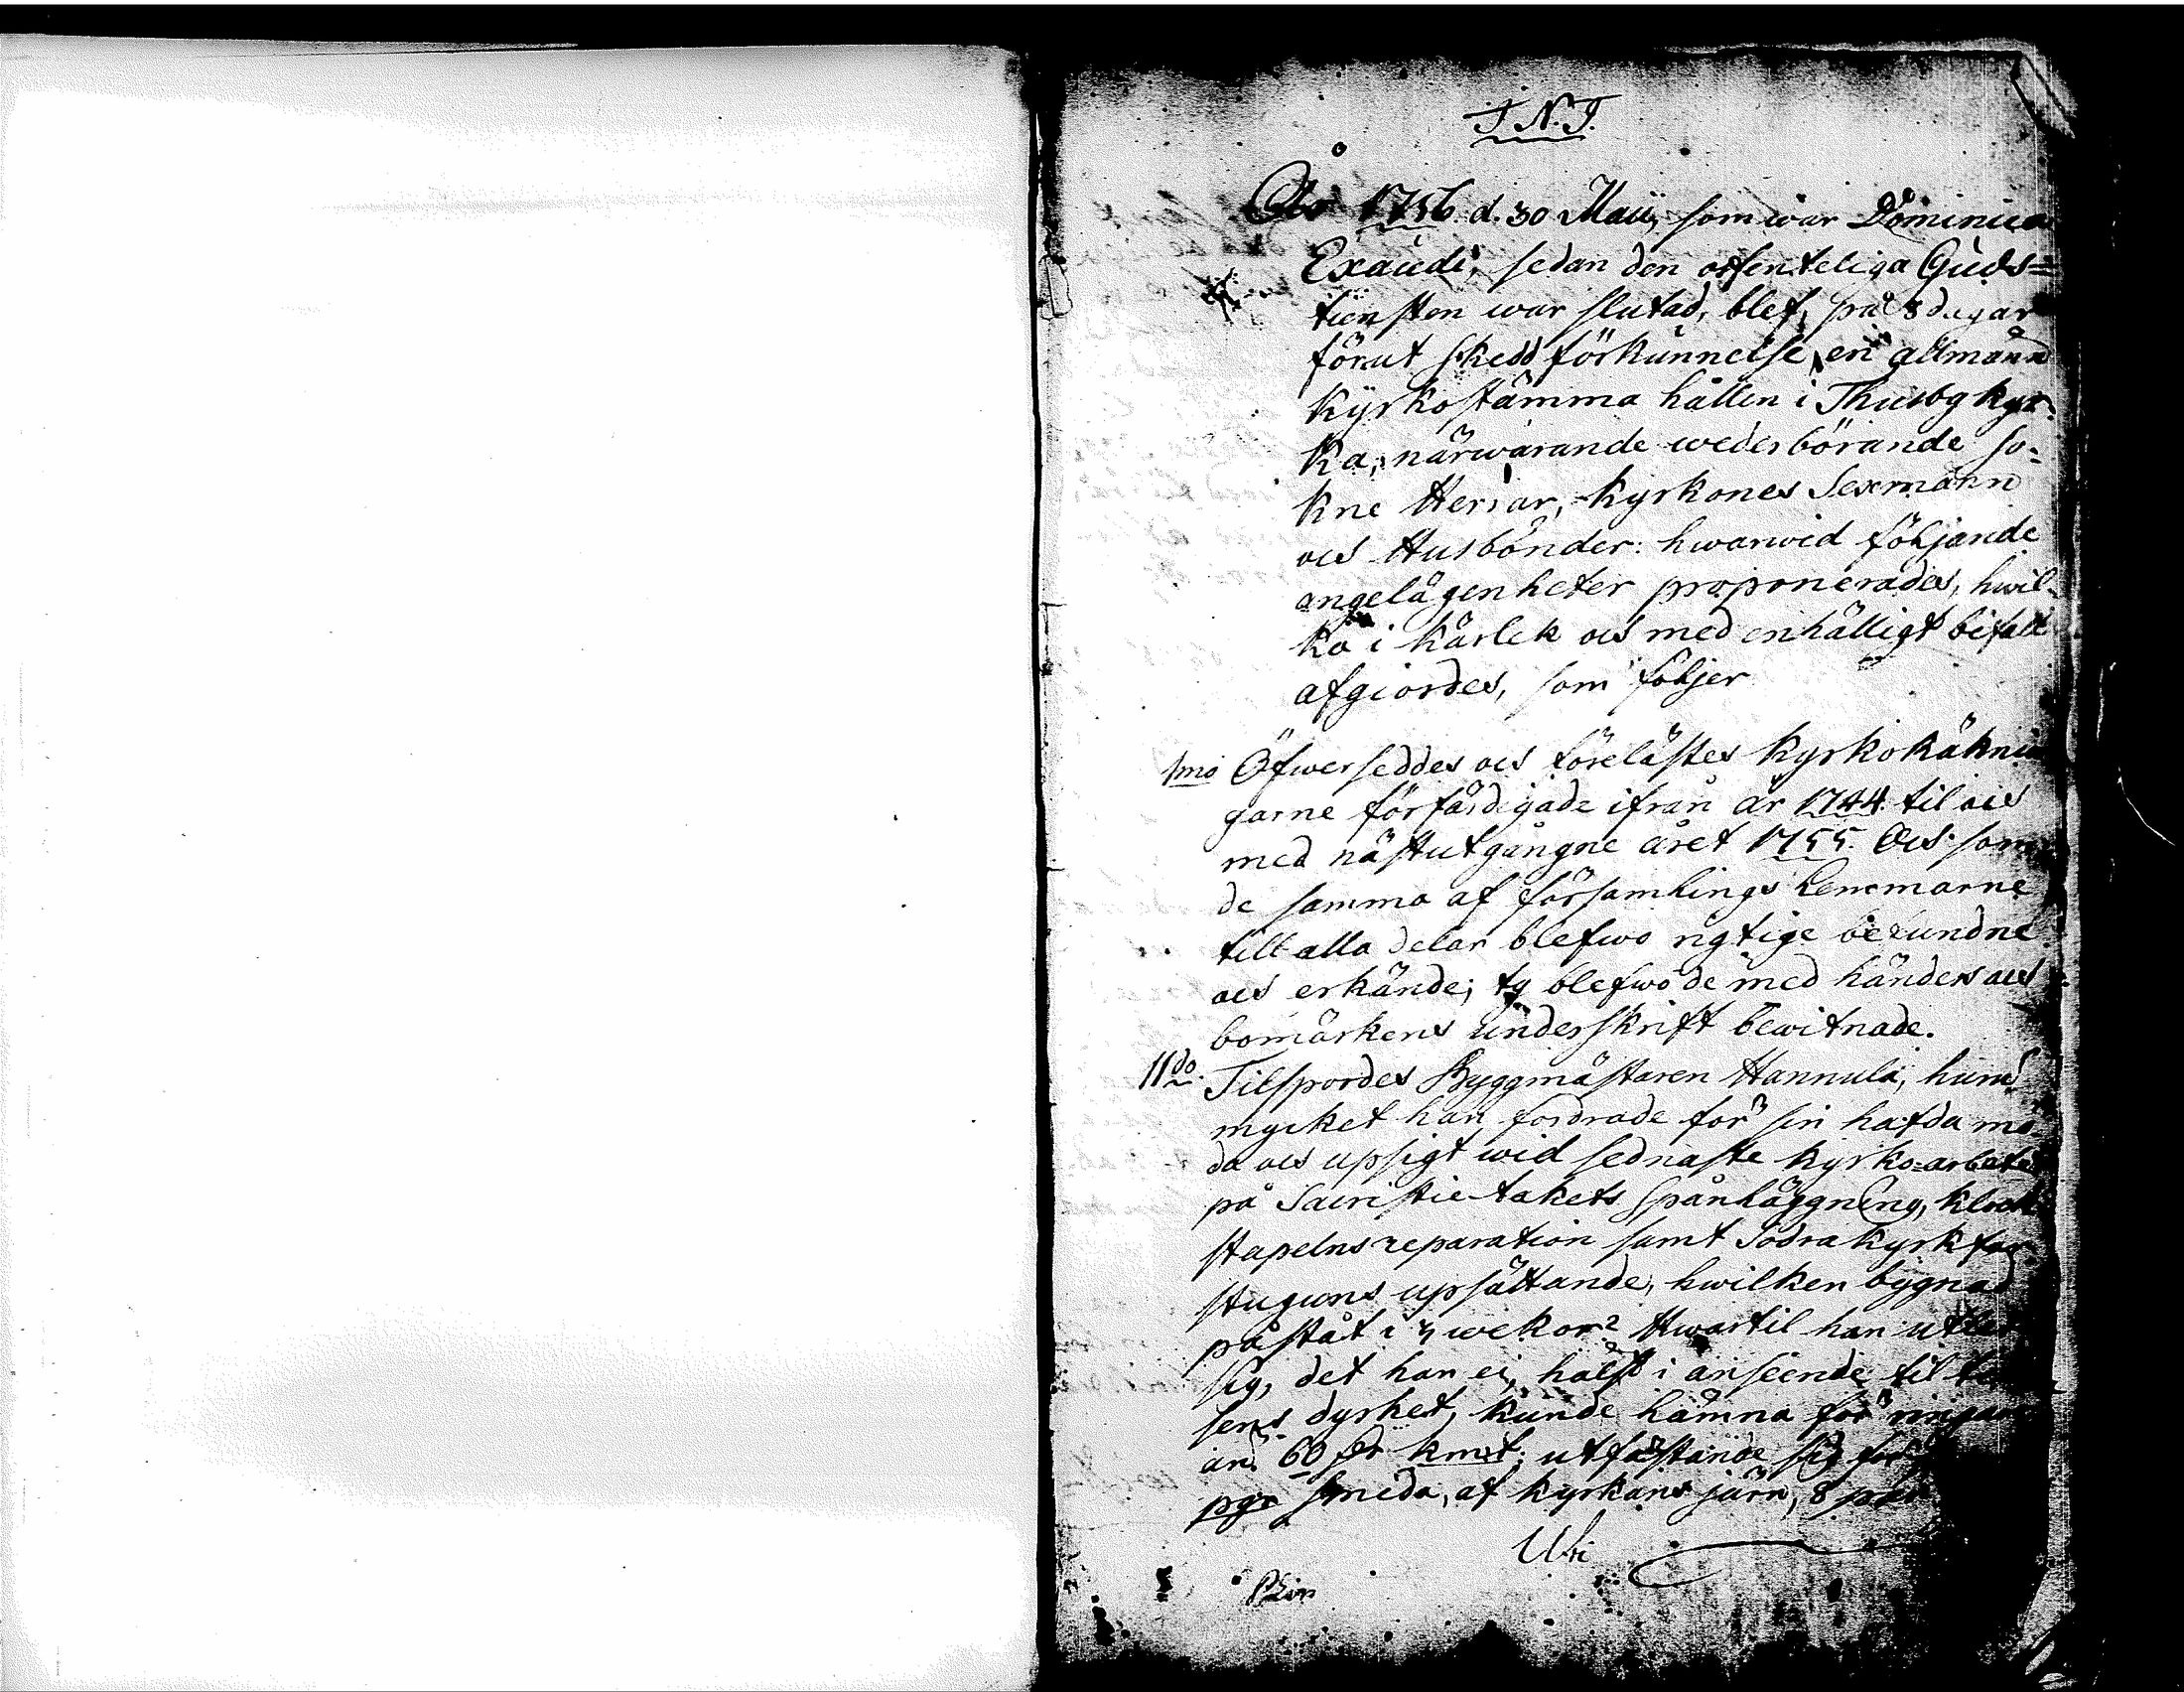 J. N. J.
Åhr 1756 d. 30 Maii, som war Dominica
Exaudi, sedan den offenteliga Guds=
tiensten war slutad, blef, på 8 dagar
förut skedd förkunnelse, en allmänn
kyrkostämma hållen i Thusby kyr=
ka, närwarande wederbörande so=
kne Herrar, kyrkones Sexmänn
och Husbönder: hwarwid följande
angelägenheter proponerades, hwil=
ka i kärlek och med enhälligt bifall
afgiordes, som följer
1mo Öfwerseddes och föreläses kyrkoräknin
garne förfärdigade ifrån år 1744. til och
med nästutgångne året 1755. Och som
de samma af församlings Lemmarne
till alla delar blefwo rigtige befundne
och erkände; ty blefwo de med händers och
bomärkens underskrift bewitnade.
IIdo. Tilspordes Byggmästaren Hannula, huru
mycket han fordrade för sin hafda mö
da och upsigt wid sednaste kyrko=arbete
på Sacristie-takets spånläggning, klock
stapelns reparation samt Södra kyrk för
stuguns upsättande, hwilken bygnad
påstått i wekor? Hwartil han utlät
sig, det han ej, hälst i anseende til ti
sens dyrhet, kunde lämna för ringare
än 60 kmt. utfästande sig för
smeda, af kyrkans järn, 8